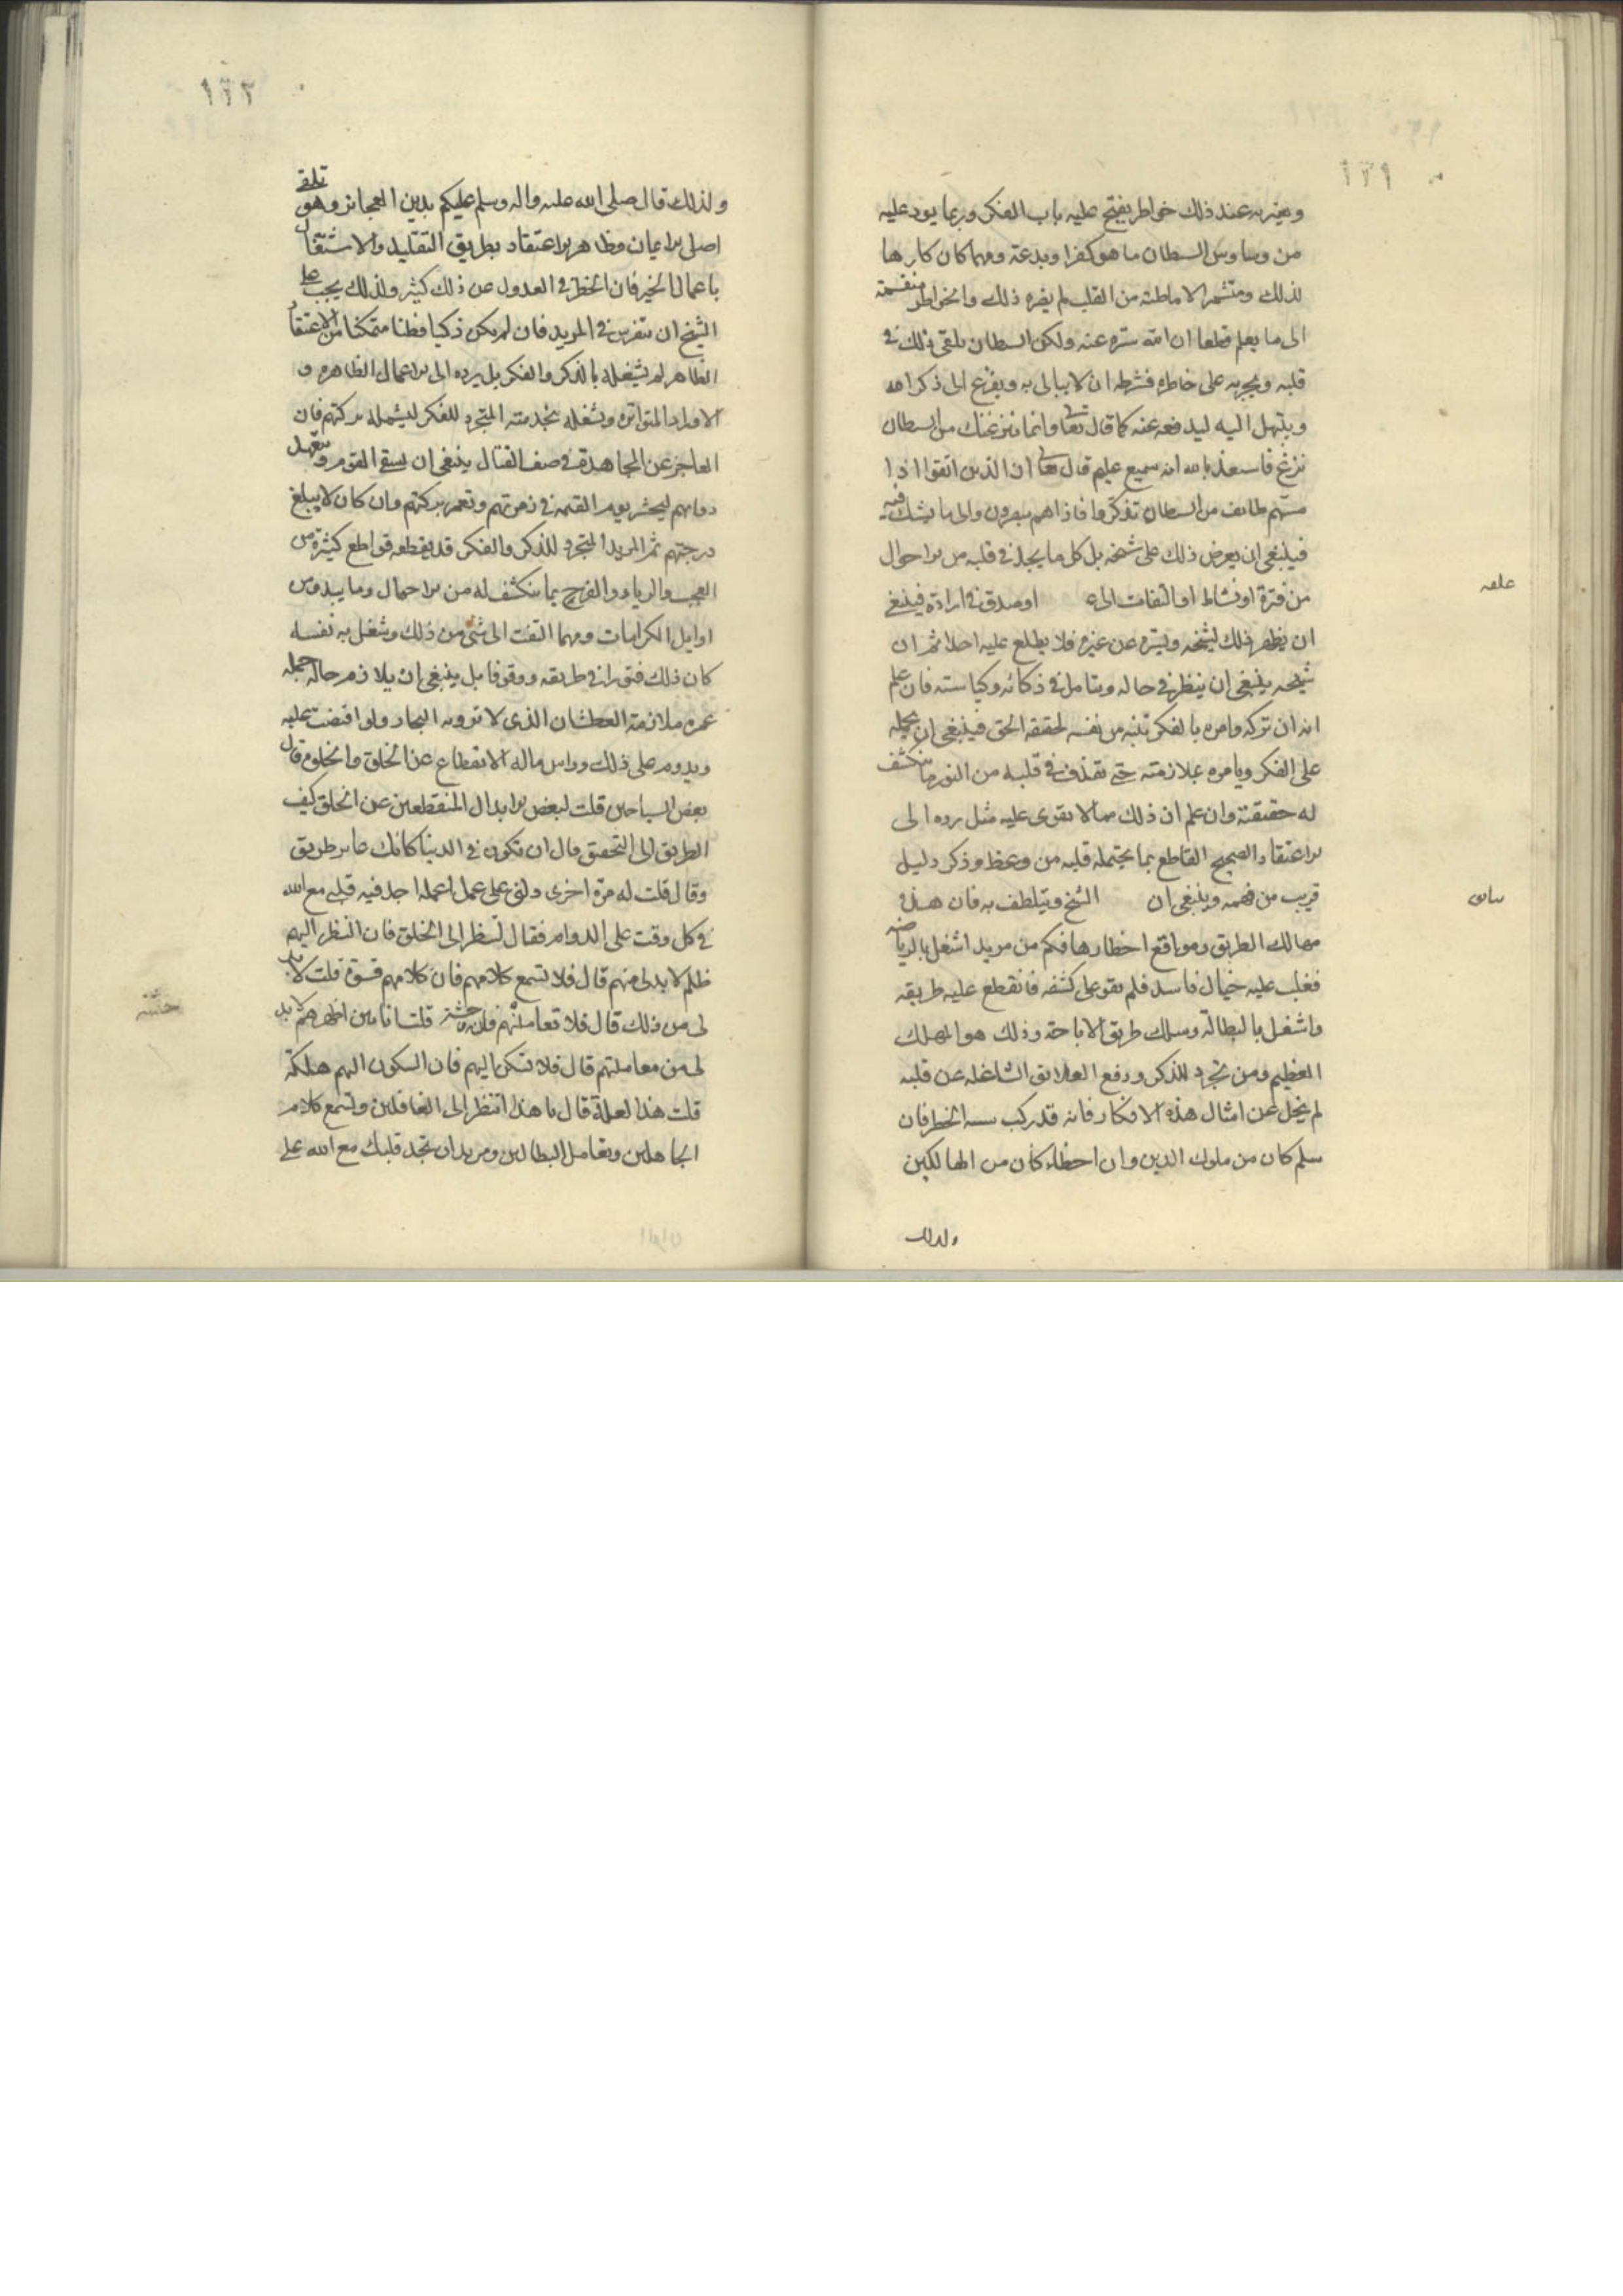 ١٣١
ويعتريه عند ذلك خواطر يفتح عليه باب الفكر وربما يرد عليه
من وساوس السطان ما هو كفرا وبدعة ومهما كان كارها
لذلك ومتشمرا لاماطته من القلب لم يضره ذلك والخواطر منقسمة
الى ما يعلم قطعا ان الله منزه عنه ولكن السطان يلقى ذلك في
قلبه ويجريه على خاطره فشرطه ان لا يبالى به ويفزع الى ذكر الله
ويبتهل اليه ليدفعه عنه كما قال تعا واما ينزغنك من السطان
نزغ فاستعذ بالله انه سميع عليم قال تعا ان الذين اتقوا اذا
مسهم طائف من السطان تذكروا فاذا هم مبصرون والى ما يشك فيه
فينبغى ان يعرض ذلك على شيخه بل كل ما يجد في قلبه من الاحوال
من فترة او نشاط او التفات الى او صدق في ارادة فينبغي
علقه
ان يظهر ذلك لشيخه ويستره عن غيره فلا يطلع عليه احدا ثم ان
شيخه ينبغى ان ينظر في حاله ويتامل في ذكائه وكياسته فان علم
انه ان تركه وامره بالفكر تنبه من نفسه لحقيقة الحق فينبغى ان يحيله
على الفكر ويامره بملازمته حتى يقذف في قلبه من النور ما ينكشف
له حقيقته وان علم ان ذلك مما لا يقوى عليه مثل رده الى
الاعتقاد الصحيح القاطع بما يحتمله قلبه من وعظ وذكر دليل
قريب من فهمه وينبغى ان الشيخ ويتلطف به فان هذه
مهالك الطريق ومواقع اخطارها فكم من مريد اشتغل بالرياضه
فغلب عليه خيال فاسد فلم يقو على كشفه فانقطع عليه طريقه
واشتغل بالبطالة وسلك طريق الاباحة وذلك هو الهلاك
العظيم ومن تجرد للذكر ودفع العلايق الشاغله عن قلبه
لم يخل عن امثال هذه الافكار فانه قد ركب سفينة الخطر فان
سلم كان من ملوك الدين وان اخطاء كان من الهالكين
ولذلك
١٣٢
ولذلك قال صلى الله عليه واله وسلم عليكم بدين العجائز وهو تلقى
اصل الايمان وظاهر الاعتقاد بطريق التقليد والاشتغال
باعمال الخير فان الخطر في العدول عن ذلك كثير ولذلك يجب على
الشيخ ان يتفرس في المريد فان لم يكن ذكيا فطنا متمكنا من الاعتقاد
الظاهر لم يشغله بالذكر والفكر بل يرده الى الاعمال الظاهره و
الاوراد المتواتره ويشغله بخدمته المتجرد للفكر ليشمله بركتهم فان
العاجز عن المجاهدة في صف القتال ينبغى ان يسقي القوم ويتعهد
دوابهم ليحشر يوم القيمه في زمرتهم وتعمر بركتهم وان كان لا يبلغ
درجتهم ثم المريد المتجرد للذكر والفكر قد يقطعه قواطع كثيرة من
العجب والرياء والفرح بما ينكشف له من الاحوال وما يبدو من
اوايل الكرامات ومهما التفت الى شئ من ذلك وشغل به نفسه
كان ذلك فتورا في طريقه ووقوفا بل ينبغى ان يلازم حاله جمله
عمره ملازمة العطشان الذى لا ترويه البحار ولو افيضت عليه
ويدوم على ذلك وراس ماله الانقطاع عن الخلق والخلوة قال
بعض السياحين قلت لبعض الابدال المنقطعين عن الخلق كيف
الطريق الى التحقيق قال ان تكون في الدنيا كانك عابر طريق
وقال قلت له مرة اخرى دلنى على عمل اعمله اجد فيه قلبي مع الله
في كل وقت على الدوام فقال لا تنظر الى الخلق فان النظر اليهم
ظلم لا بد لى منهم قال فلا تسمع كلامهم فان كلامهم قسوة قلت لا بد
لى من ذلك قال فلا تعاملهم فان وحشة قلت انا بين اظهرهم لا بد
لى من معاملتهم قال فلا تسكن اليهم فان السكون اليهم هلكة
قلت هذا لعلة قال يا هذا اتنظر الى الغافلين وتسمع كلام
الجاهلين وتعامل البطالين وتريد ان تجد قلبك مع الله على